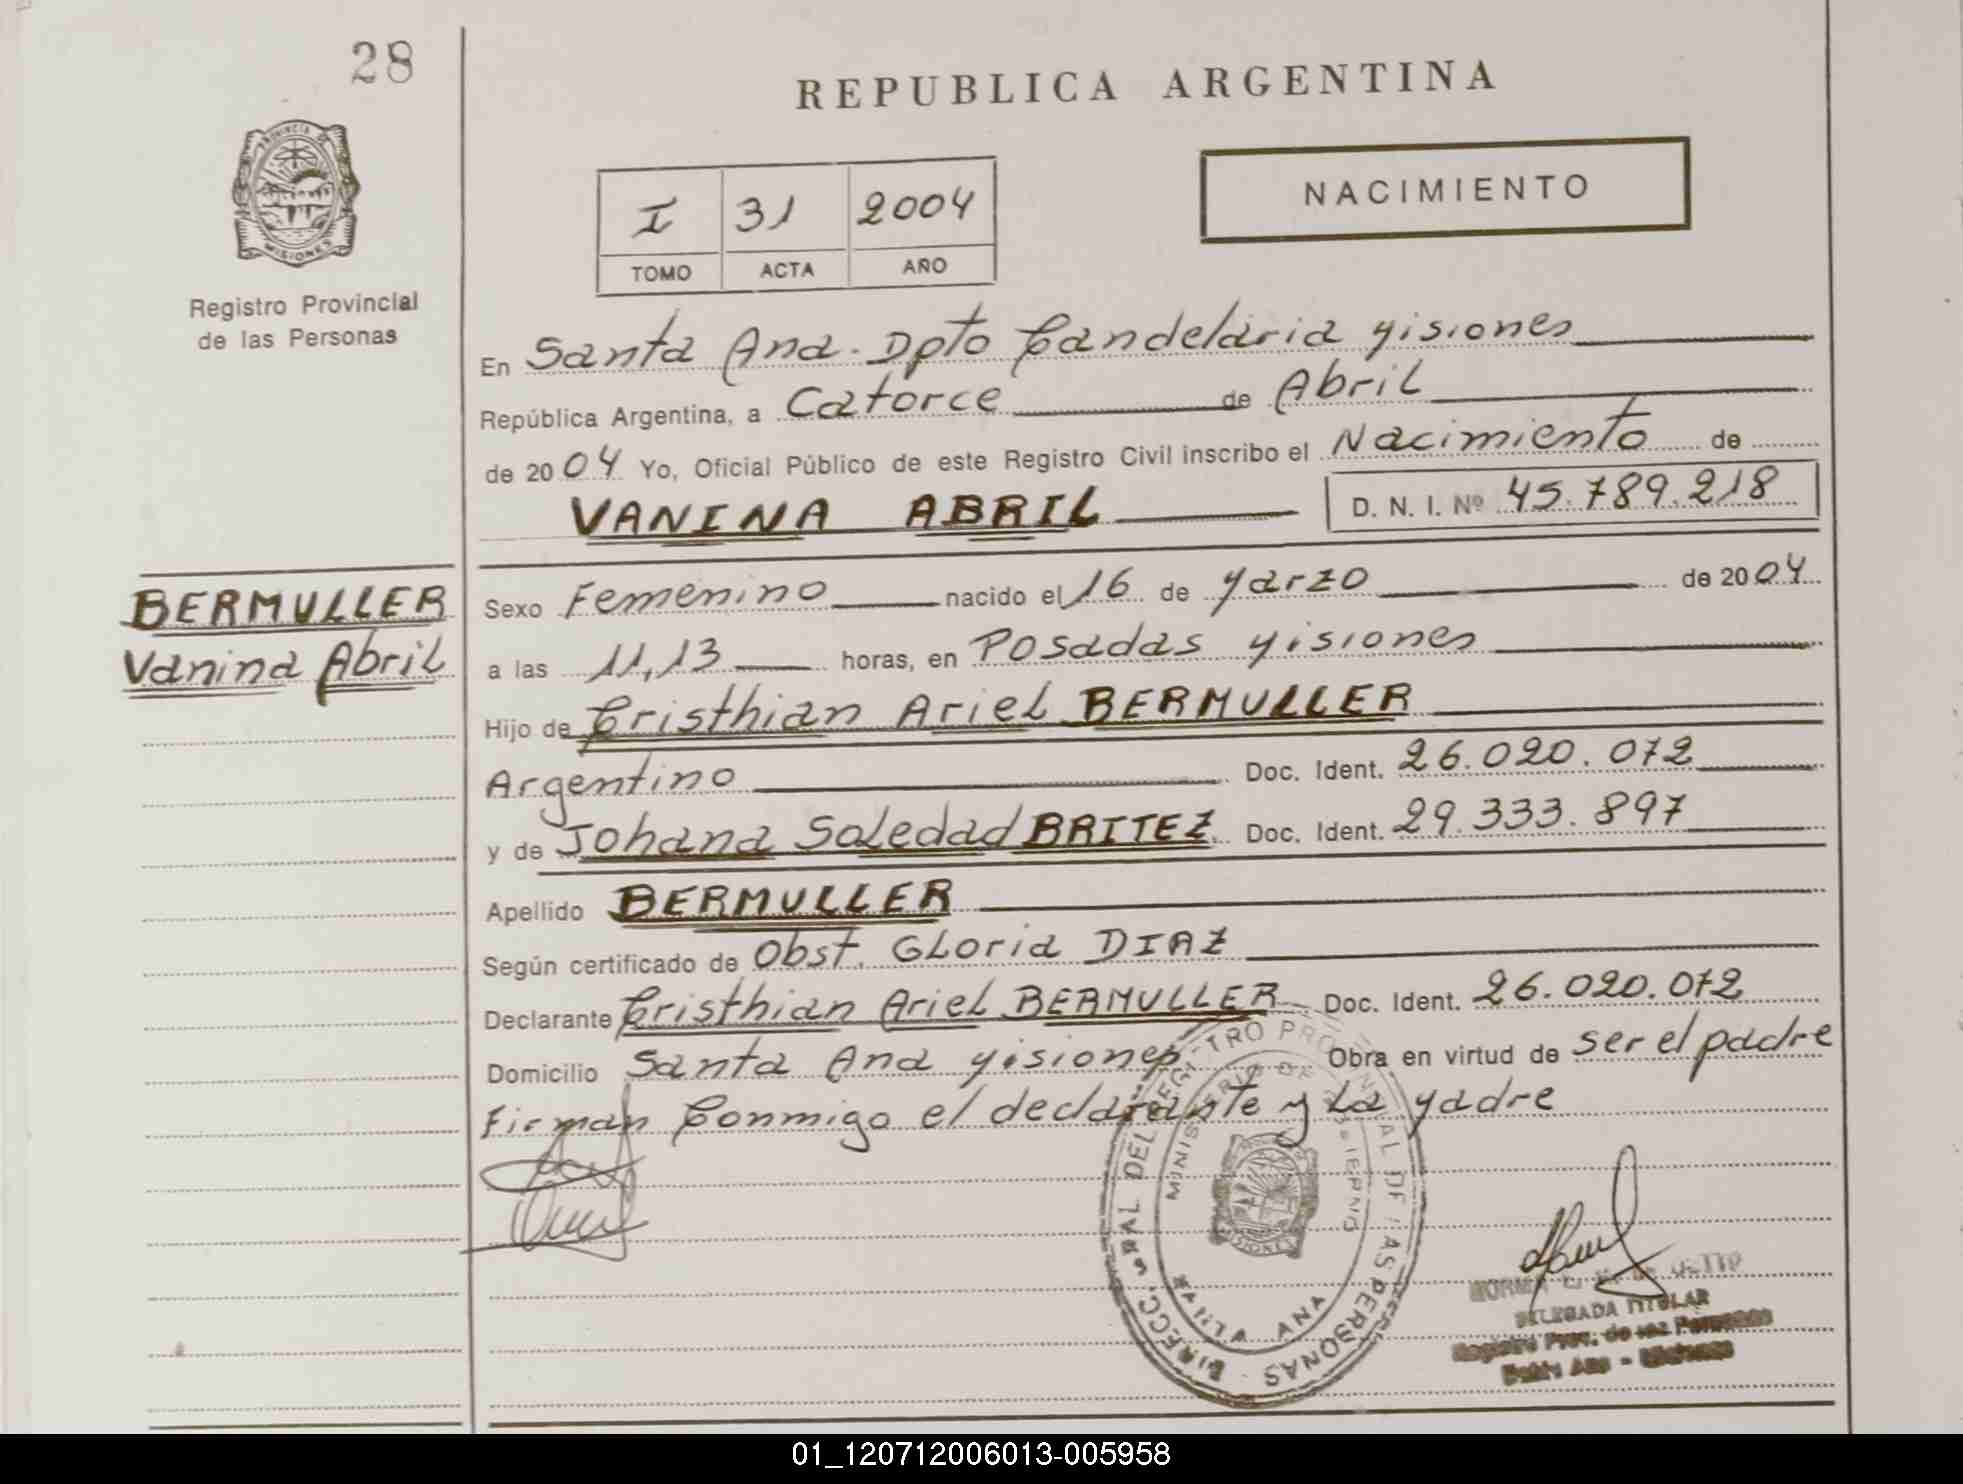 28
REPUBLICA ARGENTINA
NACIMIENTO
I 31 2004
TOMO ACTA AÑO
PROVINCIA DE
MISIONES
Registro Provincial
de las Personas
En Santa Ana. Dpto Candelaria Misiones
República Argentina, a Catorce de Abril
de 2004 Yo, Oficial Público de este Registro Civil inscribo el Nacimiento de
VANINA ABRIL D. N. I. Nº 45.789.218
BERMULLER
Vanina Abril
Sexo Femenino nacido el 16 de Marzo de 2004
a las 11,13 horas, en Posadas Misiones
Hijo de Cristhian Ariel BERMULLER
Argentino Doc. Ident. 26.020.072
y de Johana Soledad BRITEZ Doc. Ident. 29.333.897
Apellido BERMULLER
Según certificado de Obst. Gloria DIAZ
Declarante Cristhian Ariel BERMULLER Doc. Ident. 26.020.072
Domicilio Santa Ana Misiones Obra en virtud de ser el padre
Firman Conmigo el declarante y La Madre
REGISTRO PROVINCIAL DE LAS PERSONAS
MINISTERIO DE GOBIERNO
MISIONES
ANA
NORMA
DELEGADA TITULAR
Registro Prov. de las Personas
Santa Ana - Misiones
01_120712006013-005958